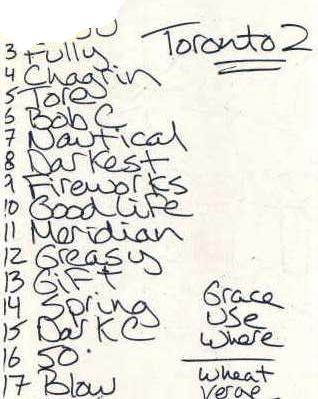 Toronto 2
3 Fully
4 Chagrin
5 Tore
6 Bob C.
7 Nautical
8 Darkest
9 Fireworks
10 Good Life
11 Meridian
12 Greasy
13 Gift
14 Spring
15 Dark C
16 50.
17 Blow
Grace
Use
Where
Wheat
Verge